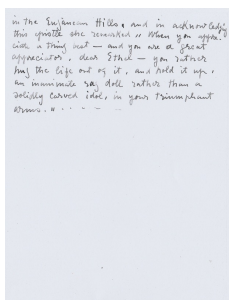 in the Euganean Hills, and in acknowledging
this epistle she remarked "When you appre-
ciate a thing best — and you are a great
appreciator, dear Ethel — you rather
hug the life out of it, and hold it up,
an inanimate rag doll rather than a
solidly carved idol, in your triumphant
arms." . . - - -